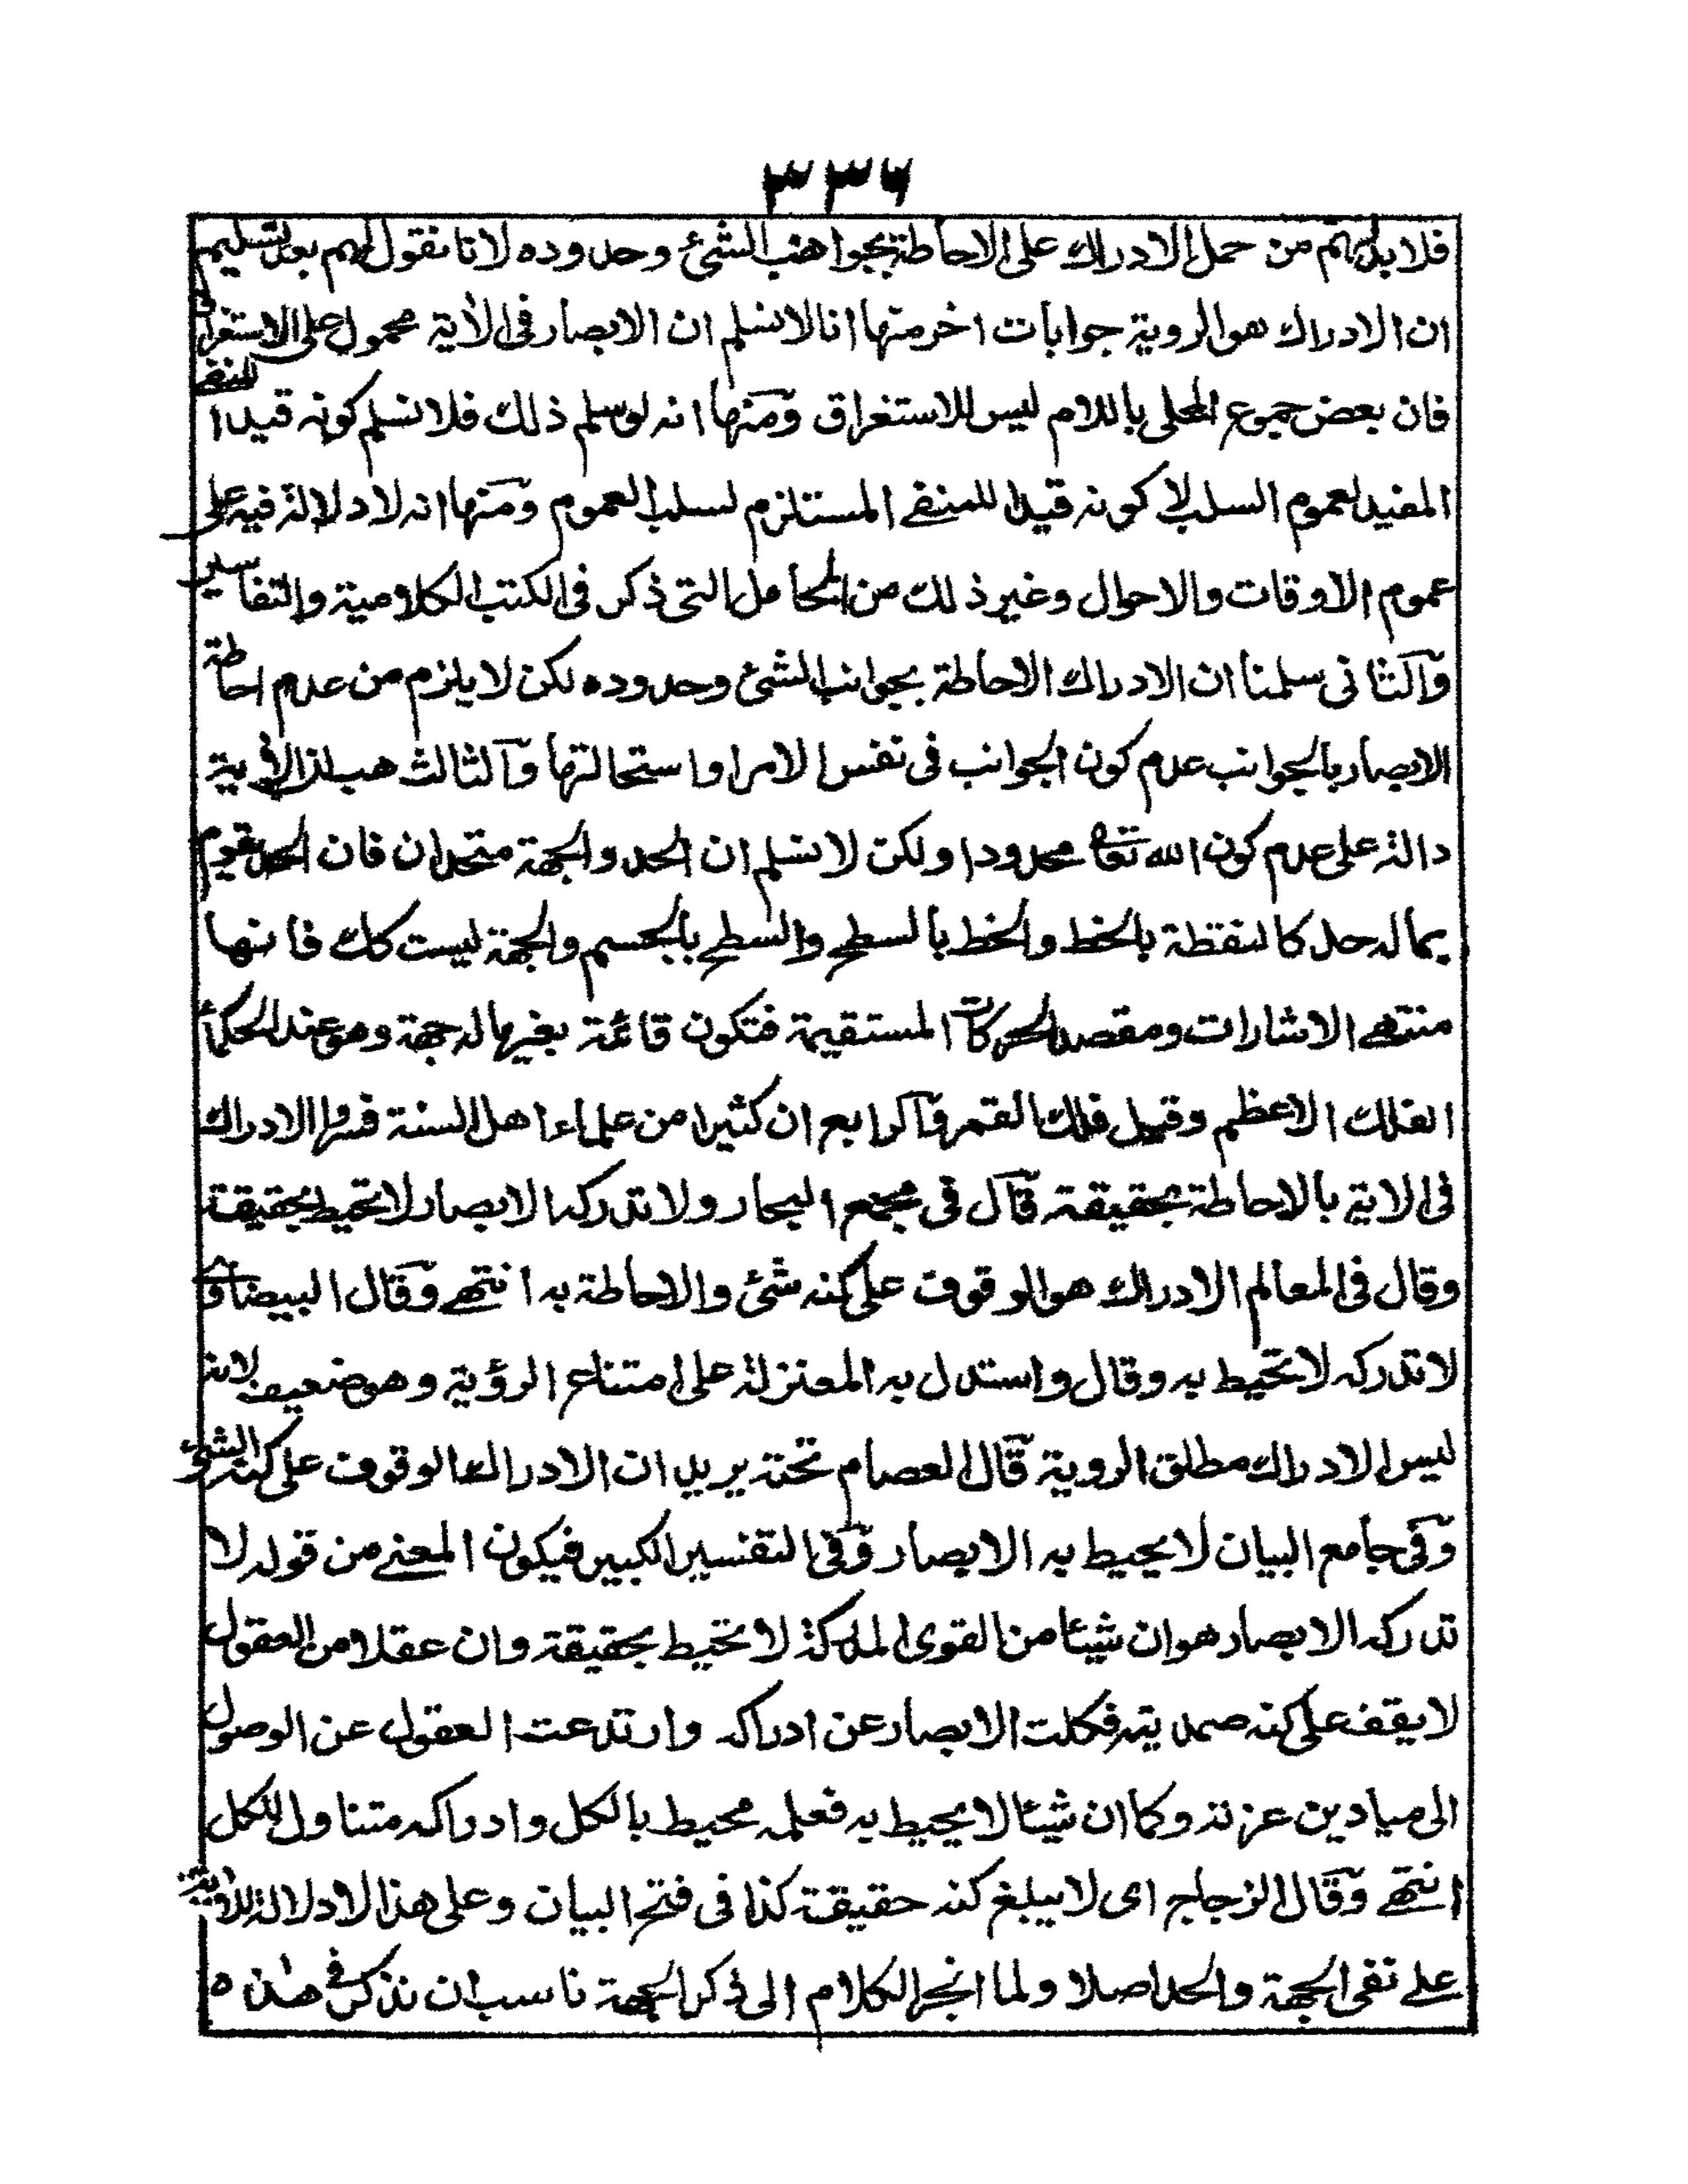 ٣٣٦
فلا بد لهم من حمل الادراك على الاحاطة بجوانب الشئ وحدوده لانا نقول لهم بعد تسليم
ان الادراك هو الروية جوابات اخر منها انا لا نسلم ان الابصار فى الأية محمول على الاستغراق
فان بعض جموع المحلى باللام ليس للاستغراق ومنها انه لو سلم ذلك فلا نسلم كونه قيدا للنفے
المفيد لعموم السلب لا كونه قيدا للمنفے المستلزم لسلب العموم ومنها انه لا دلالة فيه على
عموم الاوقات والاحوال وغير ذلك من المحامل التى ذكر فى الكتب الكلامية والتفاسير
والثانى سلمنا ان الادراك الاحاطة بجوانب الشئ وحدوده لكن لا يلزم من عدم احاطة
الابصار بالجوانب عدم كون الجوانب فى نفس الامر او استحالتها والثالث هب ان الأية
دالة على عدم كون الله تعالى محدودا ولكن لا نسلم ان الحد والجهة متحدان فان الحد يقوم
بما له حد كالنقطة بالخط والخط بالسطح والسطح بالجسم والجهة ليست كك فانها
منتهے الاشارات ومقصد الحركات المستقيمة فتكون قائمة بغير ما له جهة وهو عند الحكماء
الفلك الاعظم وقيل فلك القمر والرابع ان كثيرا من علماء اهل السنة فسروا الادراك
فى الاية بالاحاطة بحقيقته قال فى مجمع البحار ولا تدركه الابصار لا تحيط بحقيقته
وقال فى المعالم الادراك هو الوقوف على كنه شئ والاحاطة به انتهے وقال البيضاوے
لا تدركه لا تحيط به وقال واستدل به المعتزلة على امتناع الرؤية وهو ضعيف لانه
ليس الادراك مطلق الروية قال العصام تحته يريد ان الادراك الوقوف على كنه الشئ
وفى جامع البيان لا يحيط به الابصار وفى التفسير الكبير فيكون المعنے من قوله لا
تدركه الابصار هو ان شيئا من القوى المدركة لا تحيط بحقيقته وان عقلا من العقول
لا يقف على كنه صمديته فكلت الابصار عن ادراكه وارتدعت العقول عن الوصول
الى ميادين عزته وكما ان شيئا لا يحيط به فعلمه محيط بالكل وادراكه متناول للكل
انتهے وقال الزجاج اى لا يبلغ كنه حقيقته كذا فى فتح البيان وعلى هذا لا دلالة للأية
علے نفى الجهة والحد اصلا ولما انجر الكلام الى ذكر الجهة ناسب ان نذكر فے هذه